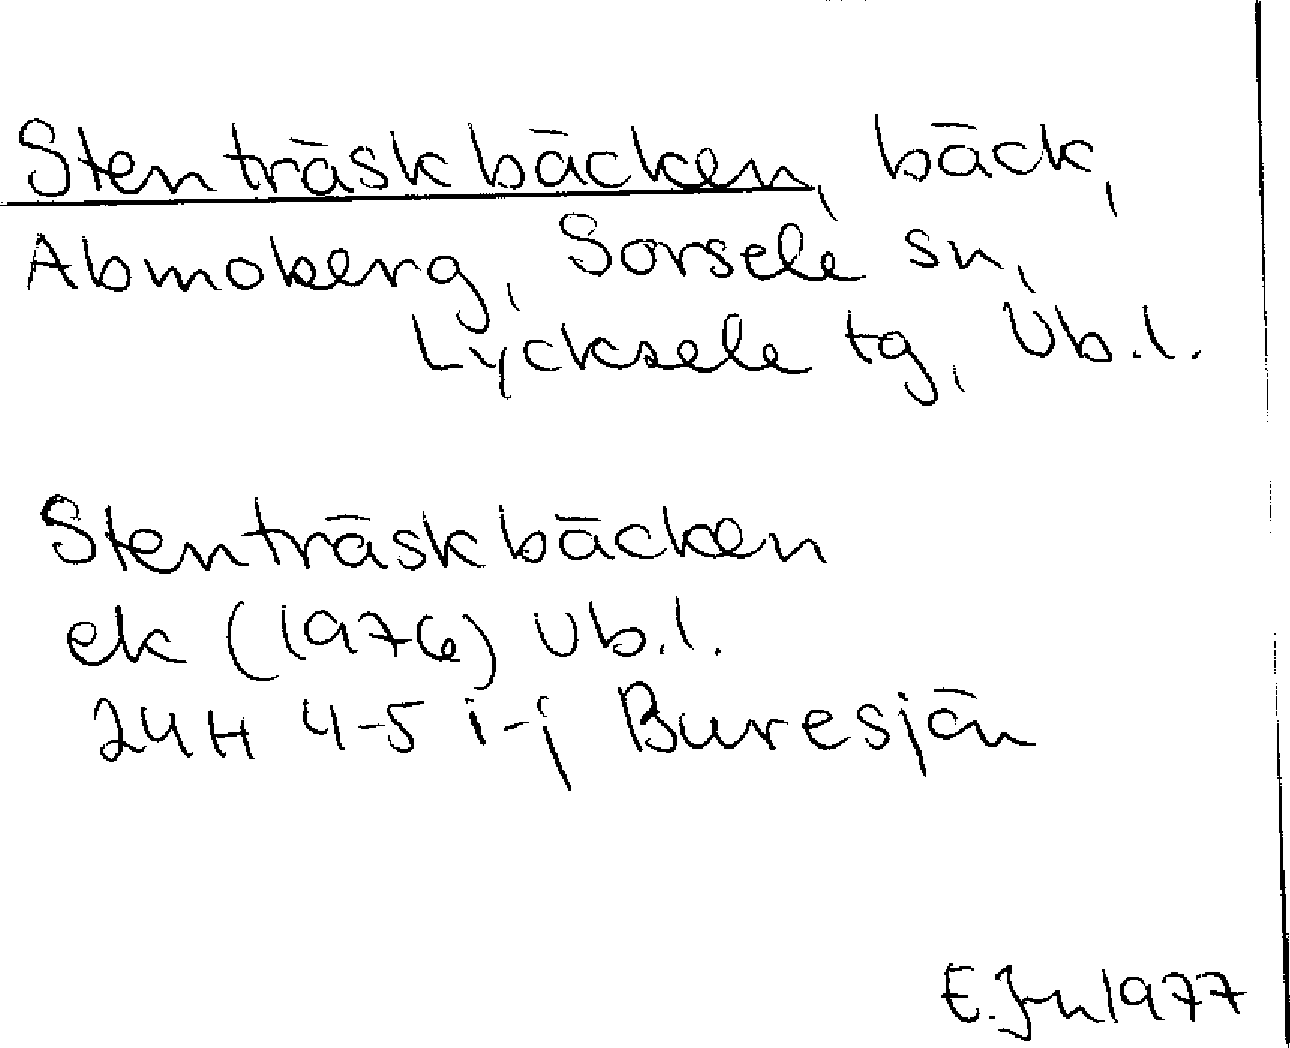 Stenträskbäcken, bäck,
Abmoberg, Sorsele sn,
Lycksele tg, Vb.l.
Stenträskbäcken
ek (1976) Vb.l.
24H 4-5 i-j Buresjön
E. 1977